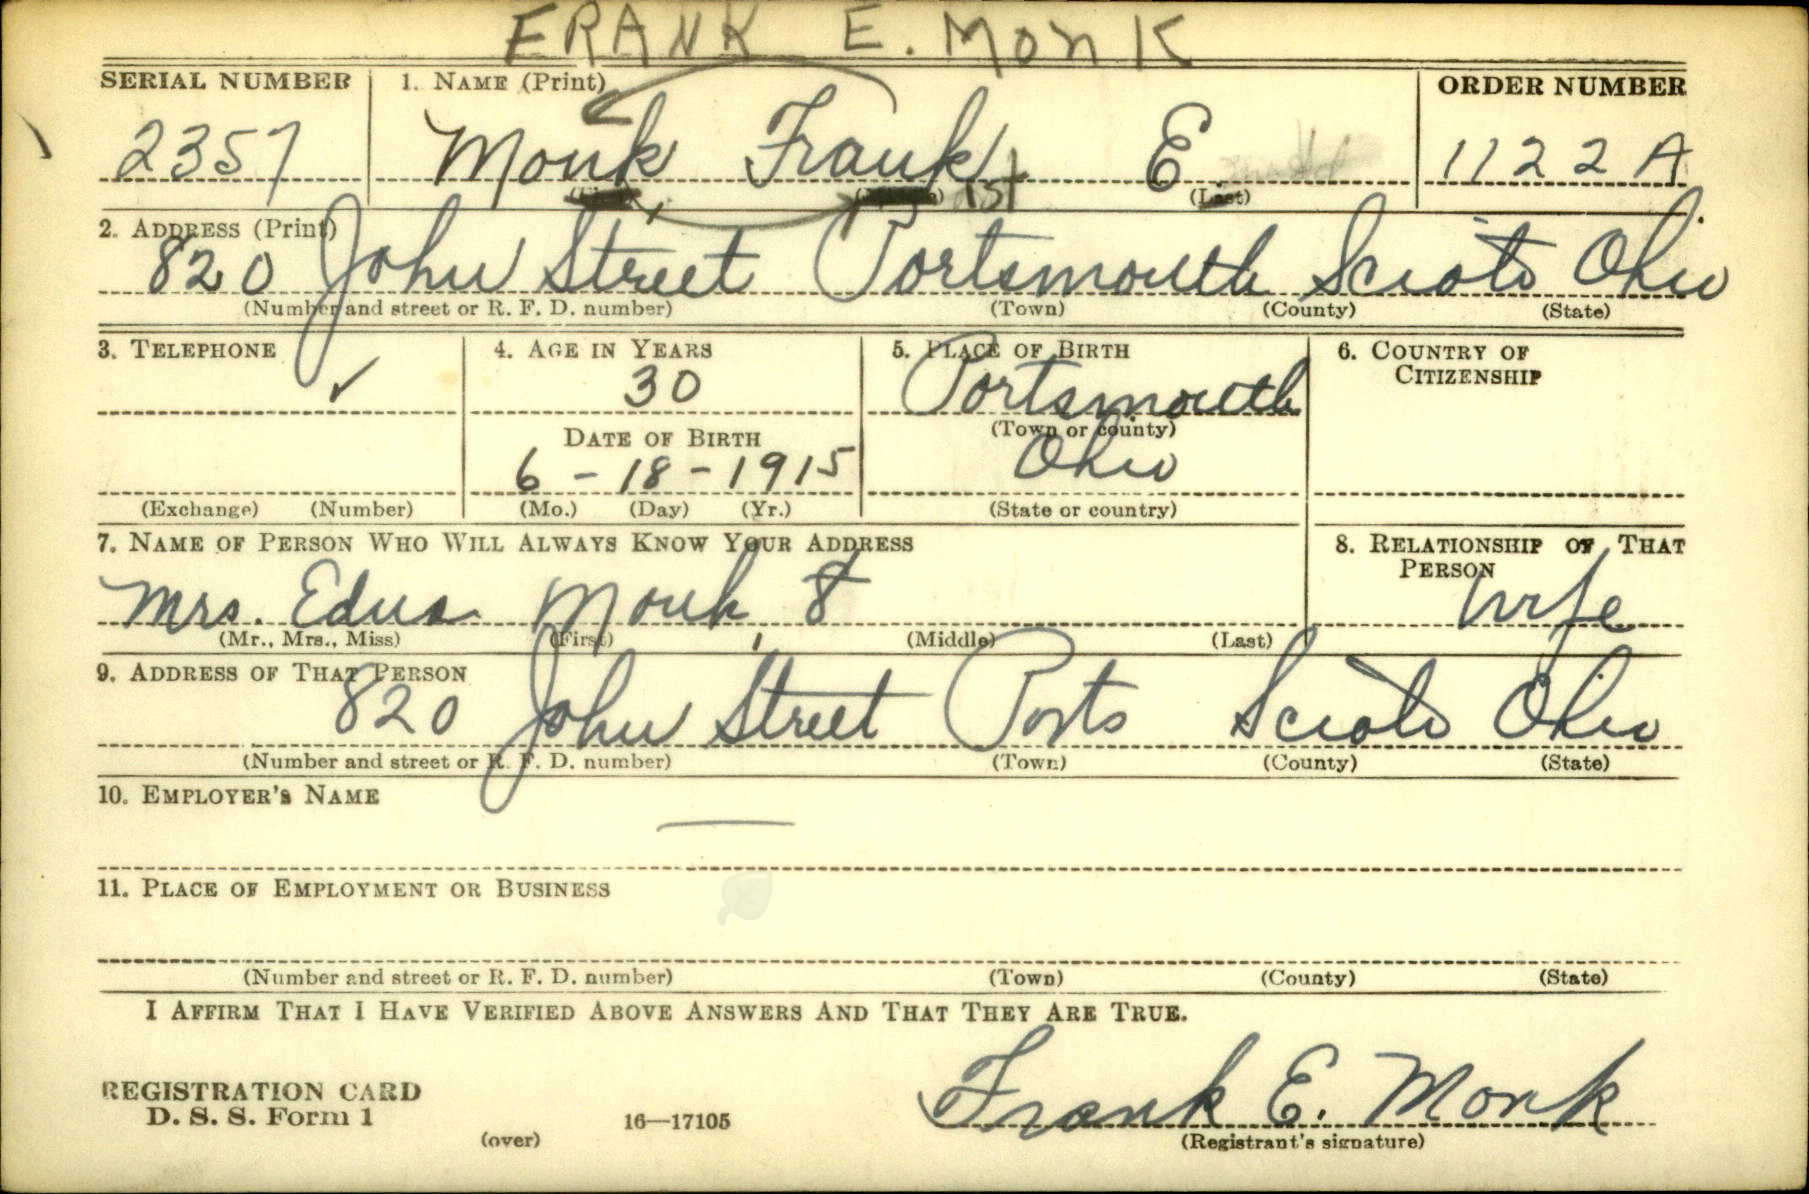 FRANK E. Monk
SERIAL NUMBER 1. NAME (Print) ORDER NUMBER
2357 Monk Frank E 1122A
1st (Last)
2. ADDRESS (Print)
820 John Street Portsmouth Scioto Ohio
(Number and street or R. F. D. number) (Town) (County) (State)
3. TELEPHONE 4. AGE IN YEARS 5. PLACE OF BIRTH 6. COUNTRY OF
CITIZENSHIP
✓ 30 Portsmouth
(Town or county)
DATE OF BIRTH
6 - 18 - 1915 Ohio
(Exchange) (Number) (Mo.) (Day) (Yr.) (State or country)
7. NAME OF PERSON WHO WILL ALWAYS KNOW YOUR ADDRESS 8. RELATIONSHIP OF THAT
PERSON
Mrs. Edna Monk, wife
(Mr., Mrs., Miss) (First) (Middle) (Last)
9. ADDRESS OF THAT PERSON
820 John Street Ports Scioto Ohio
(Number and street or R. F. D. number) (Town) (County) (State)
10. EMPLOYER'S NAME
—
11. PLACE OF EMPLOYMENT OR BUSINESS
(Number and street or R. F. D. number) (Town) (County) (State)
I AFFIRM THAT I HAVE VERIFIED ABOVE ANSWERS AND THAT THEY ARE TRUE.
REGISTRATION CARD
D. S. S. Form 1 Frank E. Monk
(over) 16—17105 (Registrant's signature)